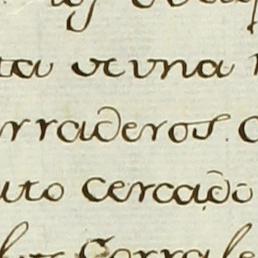 ta de una
rraderos.
uto cercado
los Corrale